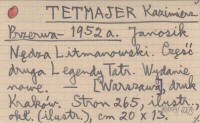 TETMAJER Kazimierz
Przerwa - 1952 a. Janosik
Nędza Litmanowski. Część
druga Legendy Tatr. Wydanie
nowe. — [Warszawa], druk
Kraków. Stron 265, ilustr.,
okł. (ilustr.), cm 20 x 13.